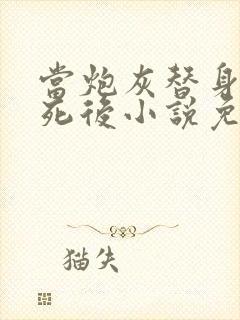 當炮灰替身
死後小說免
猫失